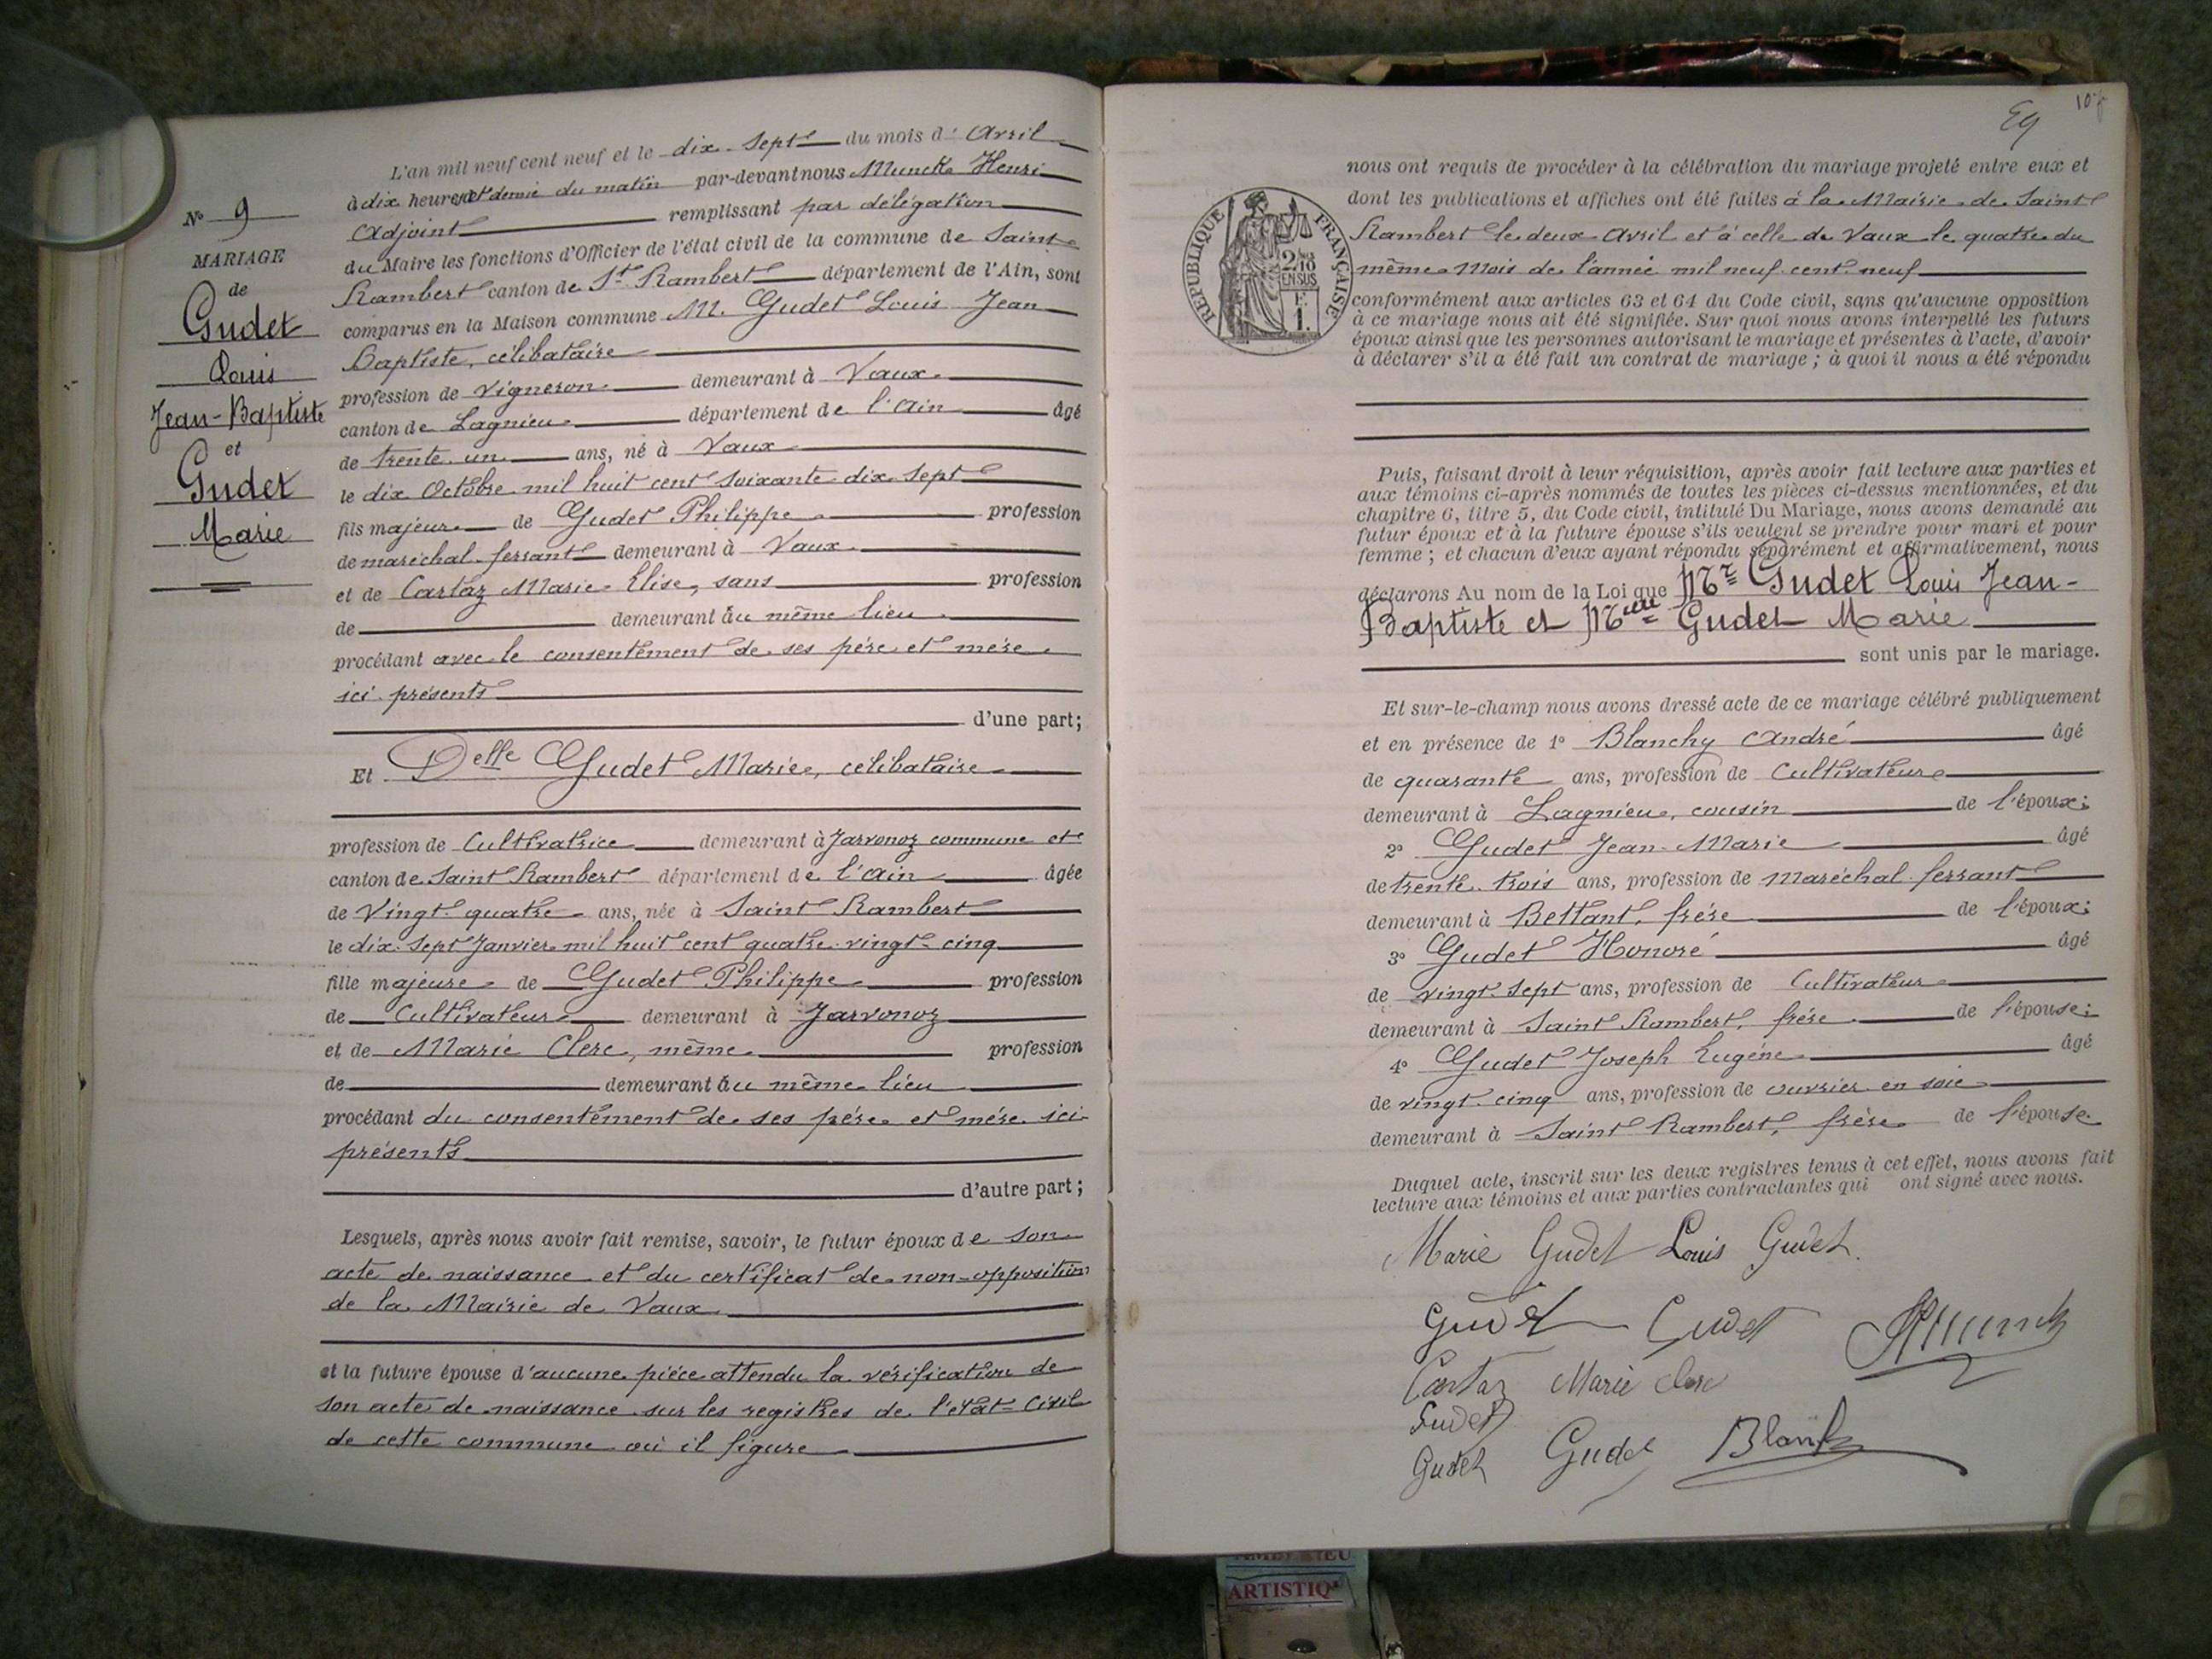 N° 9
MARIAGE
de
Gudet
Louis
Jean-Baptiste
et
Gudet
Marie
L'an mil neuf cent neuf et le dix-sept du mois d'Avril
à dix heures et demie du matin par-devant nous Munck Henri
adjoint remplissant par délégation
du Maire les fonctions d'Officier de l'état civil de la commune de Saint
Rambert canton de St Rambert département de l'Ain, sont
comparus en la Maison commune M. Gudet Louis Jean
Baptiste, célibataire
profession de vigneron demeurant à Vaux
canton de Lagnieu département de l'Ain âgé
de trente un ans, né à Vaux
le dix Octobre mil huit cent soixante dix sept
fils majeur de Gudet Philippe profession
de maréchal ferrant demeurant à Vaux
et de Cartaz Marie Elise, sans profession
de demeurant au même lieu
procédant avec le consentement de ses père et mère
ici présents
d'une part;
Et Delle Gudet Marie, célibataire
profession de Cultivatrice demeurant à Javronoz commune et
canton de Saint Rambert département de l'Ain âgée
de Vingt quatre ans, née à Saint Rambert
le dix-sept Janvier mil huit cent quatre-vingt-cinq
fille majeure de Gudet Philippe profession
de Cultivateur demeurant à Javronoz
et de Marie Clerc, même profession
de demeurant au même lieu
procédant du consentement de ses père et mère ici
présents
d'autre part;
Lesquels, après nous avoir fait remise, savoir, le futur époux de son
acte de naissance et du certificat de non-opposition
de la Mairie de Vaux
et la future épouse d'aucune pièce attendu la vérification de
son acte de naissance sur les registres de l'état-Civil
de cette commune où il figure
Eg
RÉPUBLIQUE FRANÇAISE
2/10
EN SUS
F.
1.
nous ont requis de procéder à la célébration du mariage projeté entre eux et
dont les publications et affiches ont été faites à la Mairie de Saint
Rambert le deux Avril et à celle de Vaux le quatre du
même mois de l'année mil neuf cent neuf
conformément aux articles 63 et 64 du Code civil, sans qu'aucune opposition
à ce mariage nous ait été signifiée. Sur quoi nous avons interpellé les futurs
époux ainsi que les personnes autorisant le mariage et présentes à l'acte, d'avoir
à déclarer s'il a été fait un contrat de mariage ; à quoi il nous a été répondu
Puis, faisant droit à leur réquisition, après avoir fait lecture aux parties et
aux témoins ci-après nommés de toutes les pièces ci-dessus mentionnées, et du
chapitre 6, titre 5, du Code civil, intitulé Du Mariage, nous avons demandé au
futur époux et à la future épouse s'ils veulent se prendre pour mari et pour
femme ; et chacun d'eux ayant répondu séparément et affirmativement, nous
déclarons Au nom de la Loi que Mr Gudet Louis Jean-
Baptiste et Melle Gudet Marie
sont unis par le mariage.
Et sur-le-champ nous avons dressé acte de ce mariage célébré publiquement
et en présence de 1° Blanchy André âgé
de quarante ans, profession de Cultivateur
demeurant à Lagnieu, cousin de l'époux;
2° Gudet Jean-Marie âgé
de trente-trois ans, profession de maréchal ferrant
demeurant à Bettant, frère de l'époux;
3° Gudet Honoré âgé
de vingt-sept ans, profession de Cultivateur
demeurant à Saint Rambert, frère de l'épouse;
4° Gudet Joseph Eugène âgé
de vingt-cinq ans, profession de ouvrier en soie
demeurant à Saint Rambert, frère de l'épouse
Duquel acte, inscrit sur les deux registres tenus à cet effet, nous avons fait
lecture aux témoins et aux parties contractantes qui ont signé avec nous.
Marie Gudet Louis Gudet
Gudet Gudet Munck
Cartaz Marie Clerc
Gudet
Gudet Gudet Blanchy
AMBERIEU
ARTISTIQ